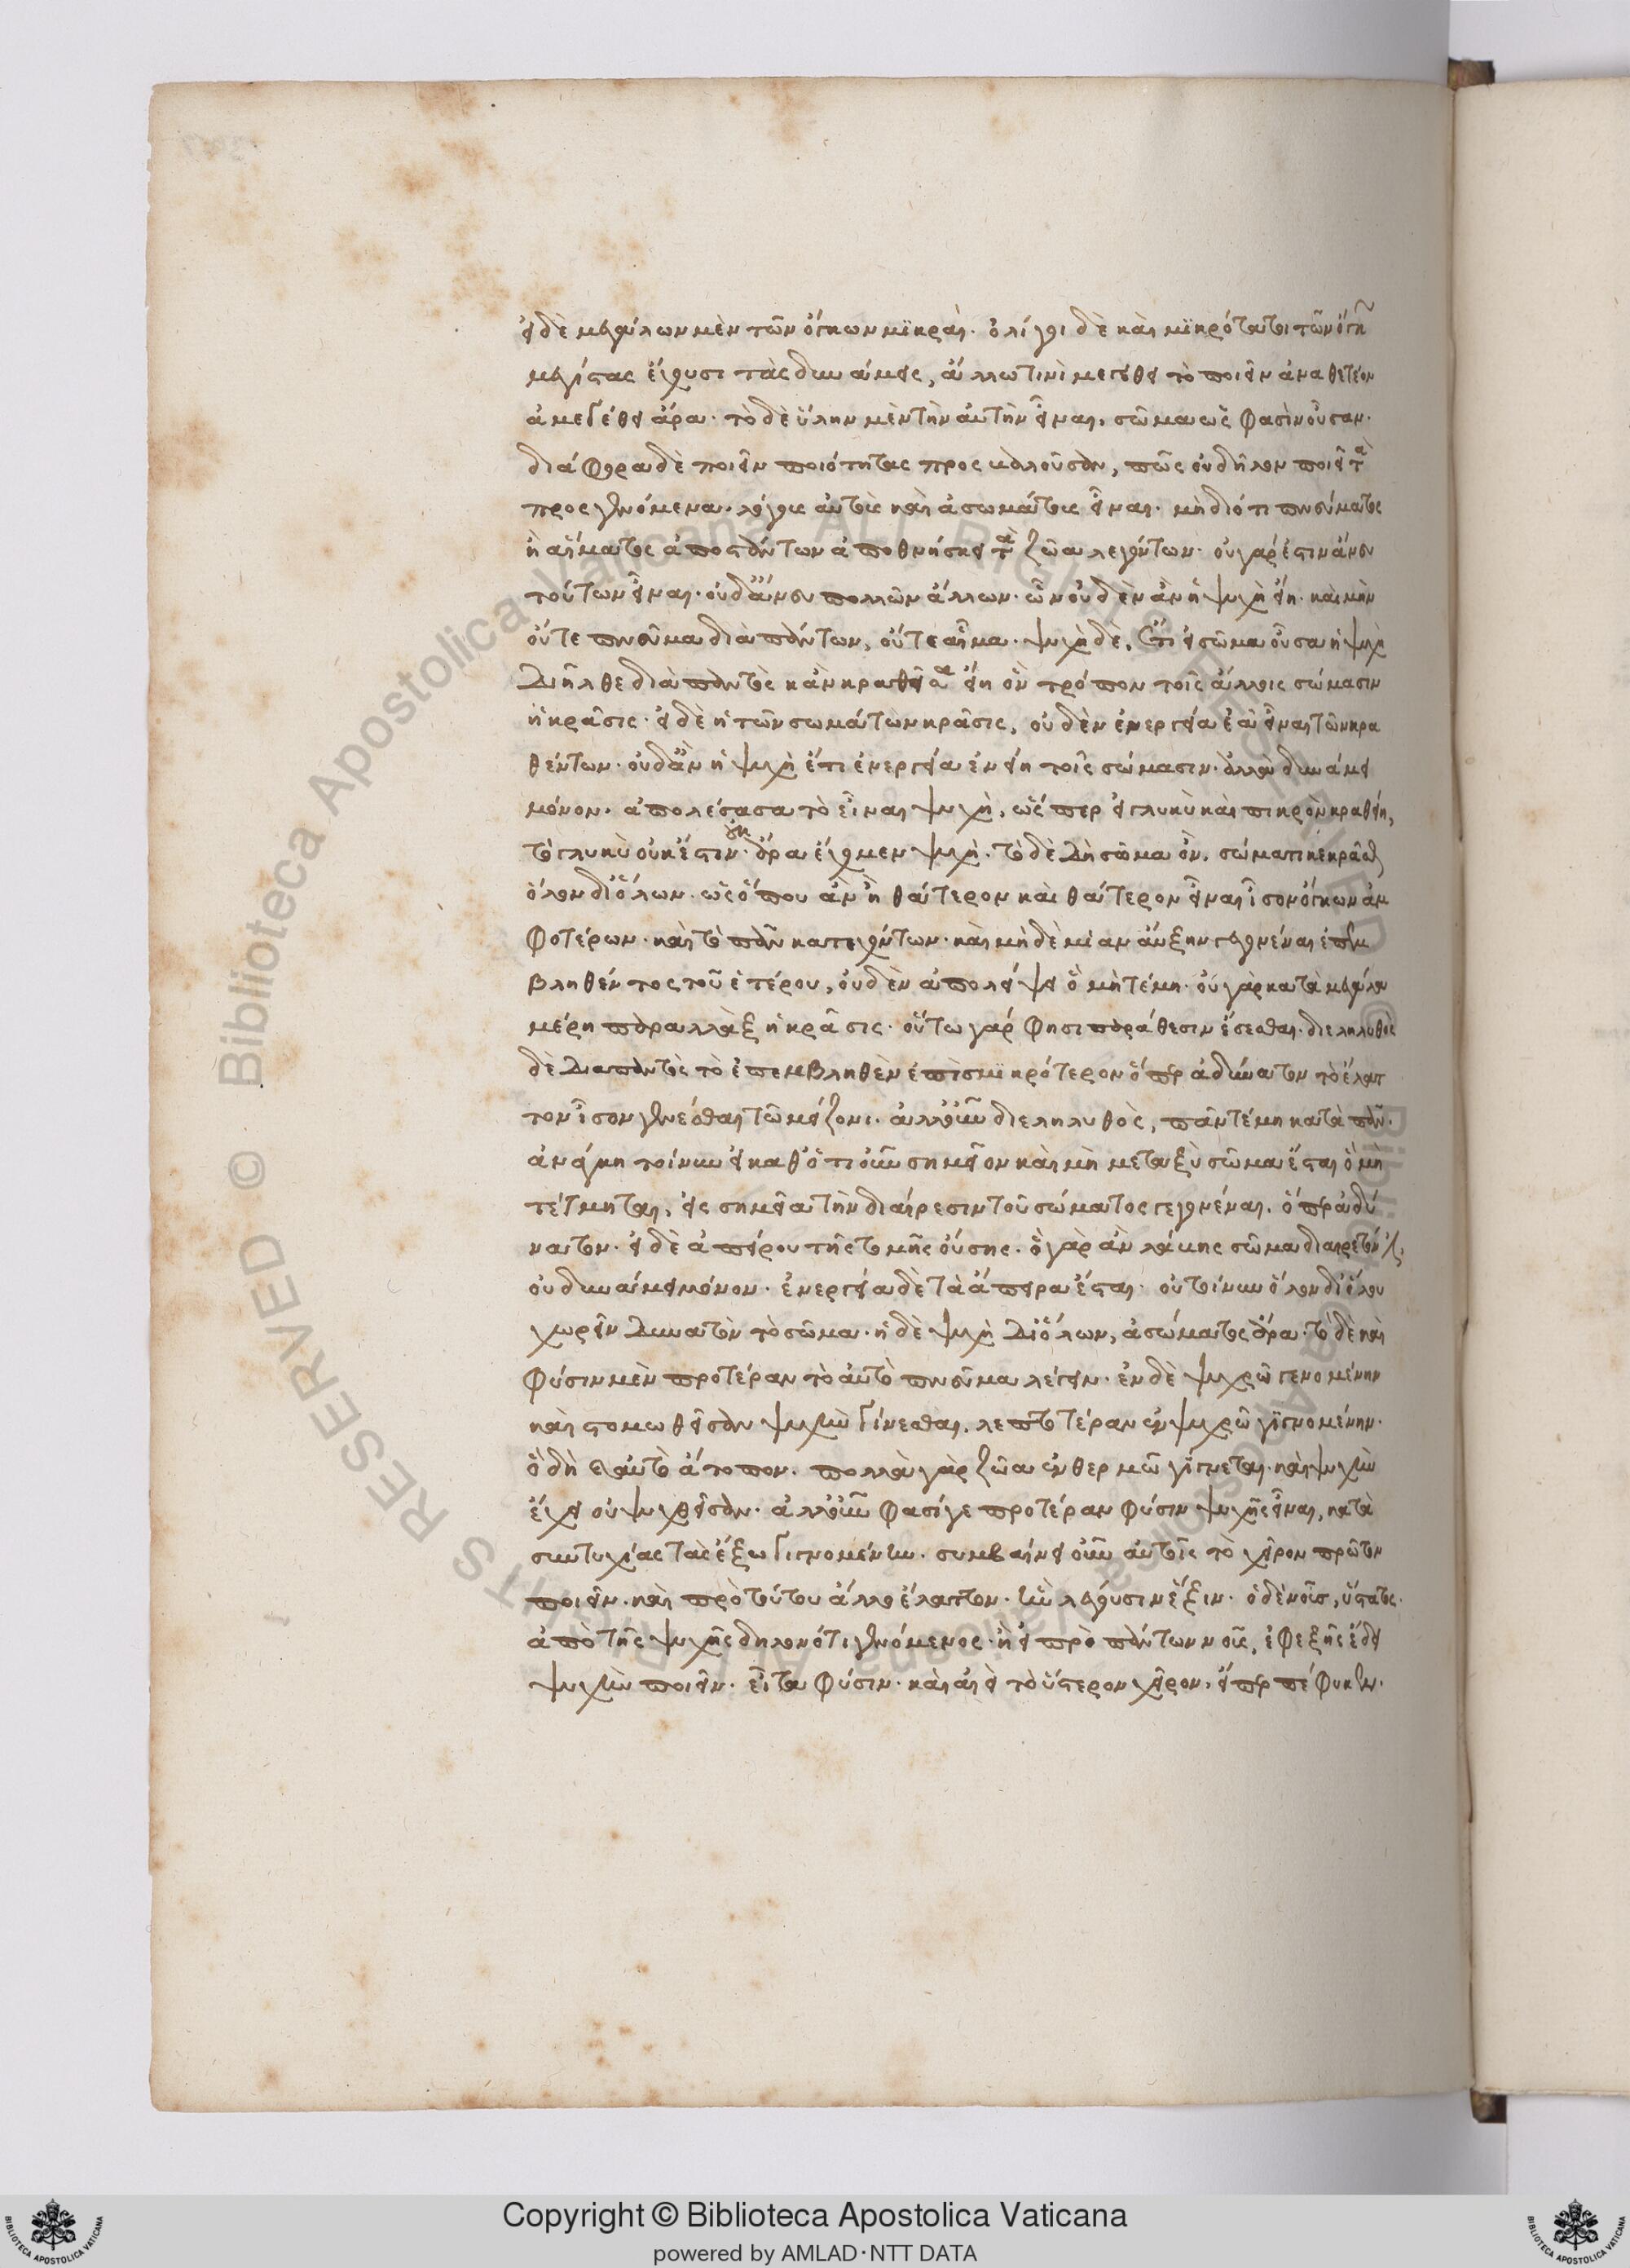 εἰ δὲ μεγάλων μὲν τῶν ὄγκων μικραὶ. ὀλίγοι δὲ καὶ μικρότατοι τῶν ὄγκων
μεγίστας ἔχουσι τὰς δυνάμεις, ἄλλω τινὶ μεγέθει τὸ ποιεῖν ἀναθετέον
ἀμεγέθει ἄρα. τὸ δὲ ὕλην μὲν τὴν αὐτὴν εἶναι, σῶμα ὥς φασιν οὖσαν.
διάφορα δὲ ποιεῖν ποιότητας προσλαβοῦσαν, πῶς οὐ δῆλον ποιεῖ τὰ
προσγινόμενα. λόγους αὐτοὺς καὶ ἀσωμάτους εἶναι. μὴ διότι πνεύματος
ἢ αἵματος ἀποστάντων ἀποθνήσκει τὰ ζῶα λεγόντων. οὐ γάρ ἐστιν ἄνευ
τούτων εἶναι. οὐδ' ἄνευ πολλῶν ἄλλων. ὧν οὐδὲν ἂν ἡ ψυχὴ εἴη. καὶ μὴν
οὔτε πνεῦμα διὰ πάντων, οὔτε αἷμα. ψυχὴ δὲ. Ἔτι εἰ σῶμα οὖσα ἡ ψυχὴ
διῆλθε διὰ παντὸς κἂν κραθεῖσα εἴη ὃν τρόπον τοῖς ἄλλοις σώμασιν
ἡ κρᾶσις. εἰ δὲ ἡ τῶν σωμάτων κρᾶσις, οὐδὲν ἐνεργεία ἐᾶ εἶναι τῶν κρα
θέντων. οὐδ' ἂν ἡ ψυχὴ ἔτι ἐνεργεία ἐνείη τοῖς σώμασιν. ἀλλὰ δυνάμει
μόνον. ἀπολέσασα τὸ εἶναι ψυχὴ, ὥσπερ εἰ γλυκὺ καὶ πικρὸν κραθείη,
τὸ γλυκὺ οὐκ ἔστιν. οὐκ ἄρα ἔχομεν ψυχὴ. τὸ δὲ δὴ σῶμα ὂν, σώματι κεκρᾶσθαι
ὅλον δι' ὅλων. ὡς ὅπου ἂν ἦ θάτερον καὶ θάτερον εἶναι ἴσον ὄγκων ἀμ
φοτέρων. καὶ τὸ πᾶν κατεχόντων. καὶ μηδὲ μίαν αὔξην γεγονέναι ἐπεμ
βληθέντος τοῦ ἑτέρου, οὐδὲν ἀπολείψει ὃ μὴ τέμη. οὐ γὰρ κατὰ μεγάλα
μέρη παραλλὰξ ἡ κρᾶσις. οὕτω γάρ φησι παράθεσιν ἔσεσθαι. διεληλυθὸς
δὲ διὰ παντὸς τὸ ἐπεμβληθὲν ἐπὶ σμικρότερον ὅπερ ἀδύνατον τὸ ἔλατ
τον ἴσον γενέσθαι τῶ μείζονι. ἀλλ' οὖν διεληλυθὸς, πᾶν τέμη κατὰ πᾶν.
ἀνάγκη τοίνυν εἰ καθ' ὅτι οὖν σημεῖον καὶ μὴ μεταξὺ σῶμα ἔσται ὃ μὴ
τέτμηται, εἰς σημεῖα τὴν διαίρεσιν τοῦ σώματος γεγονέναι. ὅπερ ἀδύ
νατον. εἰ δὲ ἀπείρου τῆς τομῆς οὔσης. ὃ γὰρ ἂν λάβης σῶμα διαιρετόν ἐστιν,
οὐ δυνάμει μόνον. ἐνεργεία δὲ τὰ ἄπειρα ἔσται. οὐ τοίνυν ὅλον δι' ὅλου
χωρεῖν δυνατὸν τὸ σῶμα. ἡ δὲ ψυχὴ δι' ὅλων, ἀσώματος ἄρα. τὸ δὲ καὶ
φύσιν μὲν προτέραν τὸ αὐτὸ πνεῦμα λέγειν. ἐν δὲ ψυχρῶ γενομένην
καὶ στομωθεῖσαν ψυχὴν γίνεσθαι. λεπτοτέραν ἐν ψυχρῶ γιγνομένην.
ὃ δὴ καὶ αὐτὸ ἄτοπον. πολλὰ γὰρ ζῶα ἐν θερμῶ γίγνεται. καὶ ψυχὴν
ἔχει οὐ ψυχθεῖσαν. ἀλλ' οὖν φασί γε προτέραν φύσιν ψυχῆς εἶναι, κατὰ
συντυχίας τὰς ἔξω γιγνομένην. συμβαίνει οὖν αὐτοῖς τὸ χεῖρον πρῶτον
ποιεῖν. καὶ πρὸ τούτου ἄλλο ἔλαττον. ἣν λέγουσιν ἕξιν. ὁ δὲ νοῦς, ὕστατος.
ἀπὸ τῆς ψυχῆς δηλονότι γενόμενος. ἢ εἰ πρὸ πάντων νοῦς, ἐφεξῆς ἔδει
ψυχὴν ποιεῖν. εἶτα φύσιν. καὶ αἰεὶ τὸ ὕστερον χεῖρον, εἴπερ πέφυκεν.
Copyright © Biblioteca Apostolica Vaticana
powered by AMLAD·NTT DATA